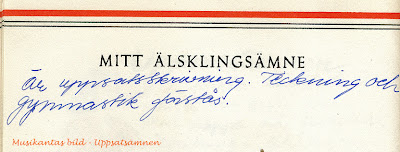 MITT ÄLSKLINGSÄMNE
Är uppsatsskrivning. Teckning och
gymnastik förstås.
Musikantas bild - Uppsatsämnen